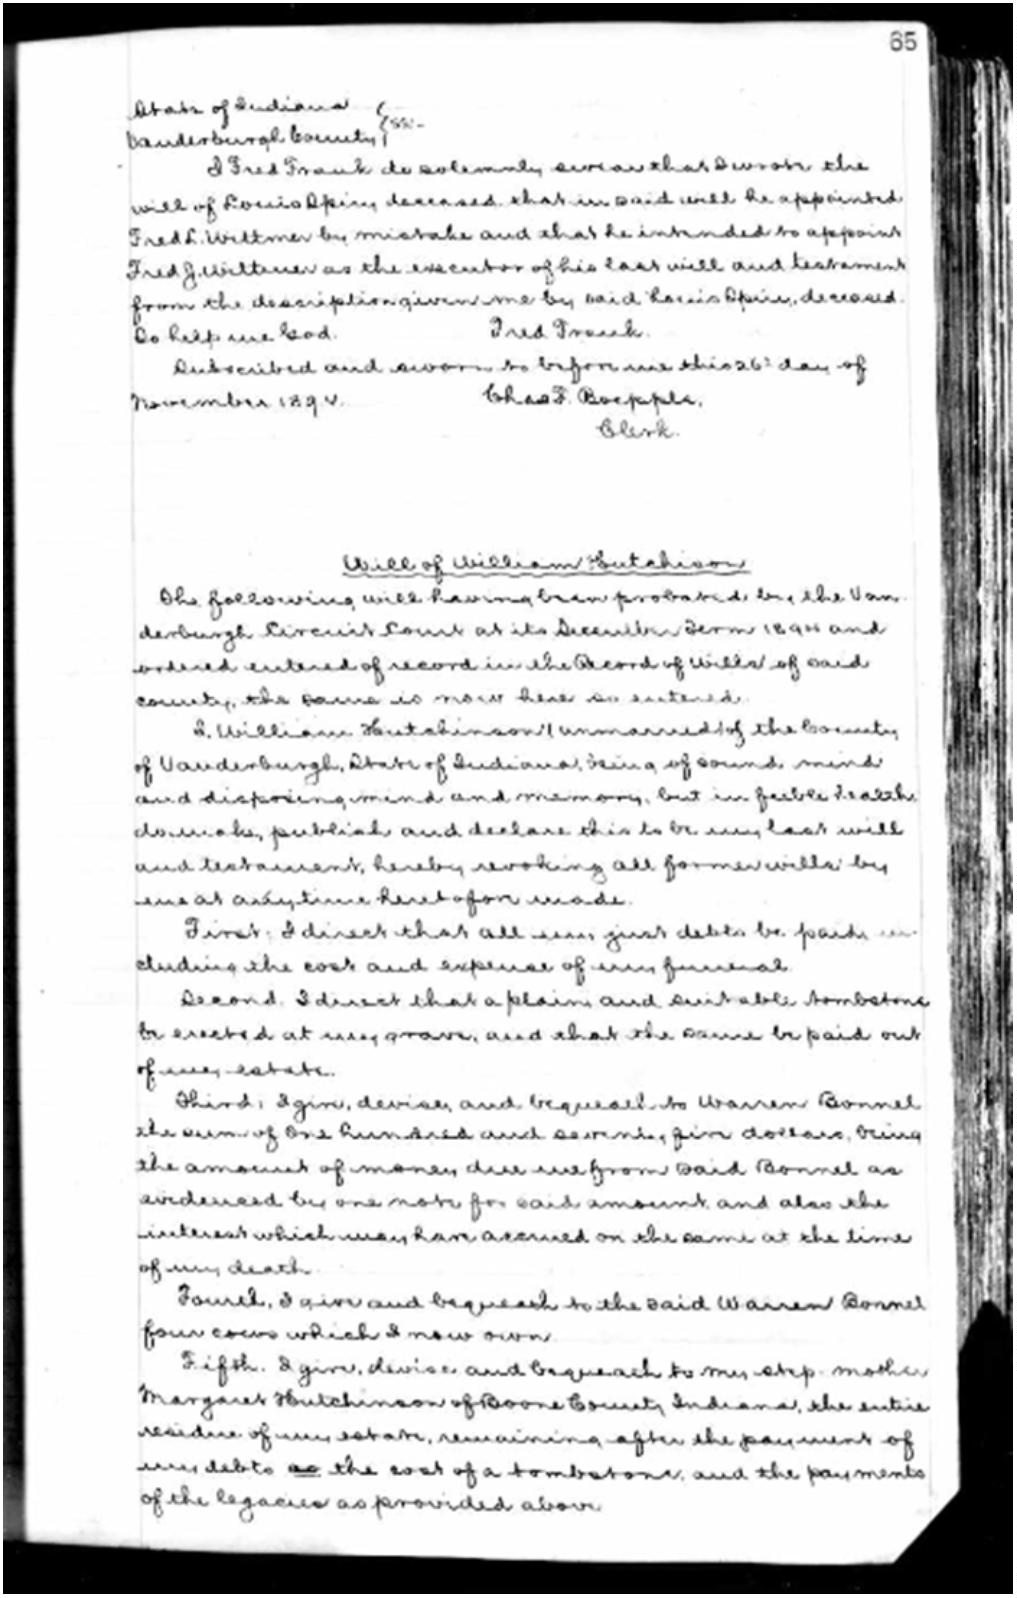 65
State of Indiana
Vanderburgh County } SS:-
I Fred Frank do solemnly swear that I wrote the
will of Louis Spiry deceased. that in said will he appointed
Fred L. Wittmer by mistake and that he intended to appoint
Fred J. Wittmer as the executor of his last will and testament
from the description given me by said Louis Spiry, deceased.
So help me God. Fred Frank.
Subscribed and sworn to before me this 26" day of
November 1894. Chas F. Boepple,
Clerk.
Will of William Hutchison
The following will having been probated by the Van
derburgh Circuit Court at its December Term 1894 and
ordered entered of record in the Record of Wills of said
county, the same is now here so entered.
I, William Hutchinson (unmarried) of the County
of Vanderburgh, State of Indiana, being of sound mind
and disposing mind and memory, but in feeble health
do make, publish and declare this to be my last will
and testament, hereby revoking all former wills by
me at any time heretofore made.
First: I direct that all my just debts be paid, in-
cluding the cost and expense of my funeral.
Second. I direct that a plain and suitable tombstone
be erected at my grave, and that the same be paid out
of my estate.
Third; I give, devise, and bequeath to Warren Bonnel
the sum of One hundred and seventy five dollars, being
the amount of money due me from said Bonnel as
evidenced by one note for said amount and also the
interest which may have accrued on the same at the time
of my death.
Fourth, I give and bequeath to the said Warren Bonnel
four cows which I now own.
Fifth. I give, devise and bequeath to my step-mother
Margaret Hutchinson of Boone County Indiana, the entire
residue of my estate, remaining after the payment of
my debts as the cost of a tombstone, and the payments
of the legacies as provided above